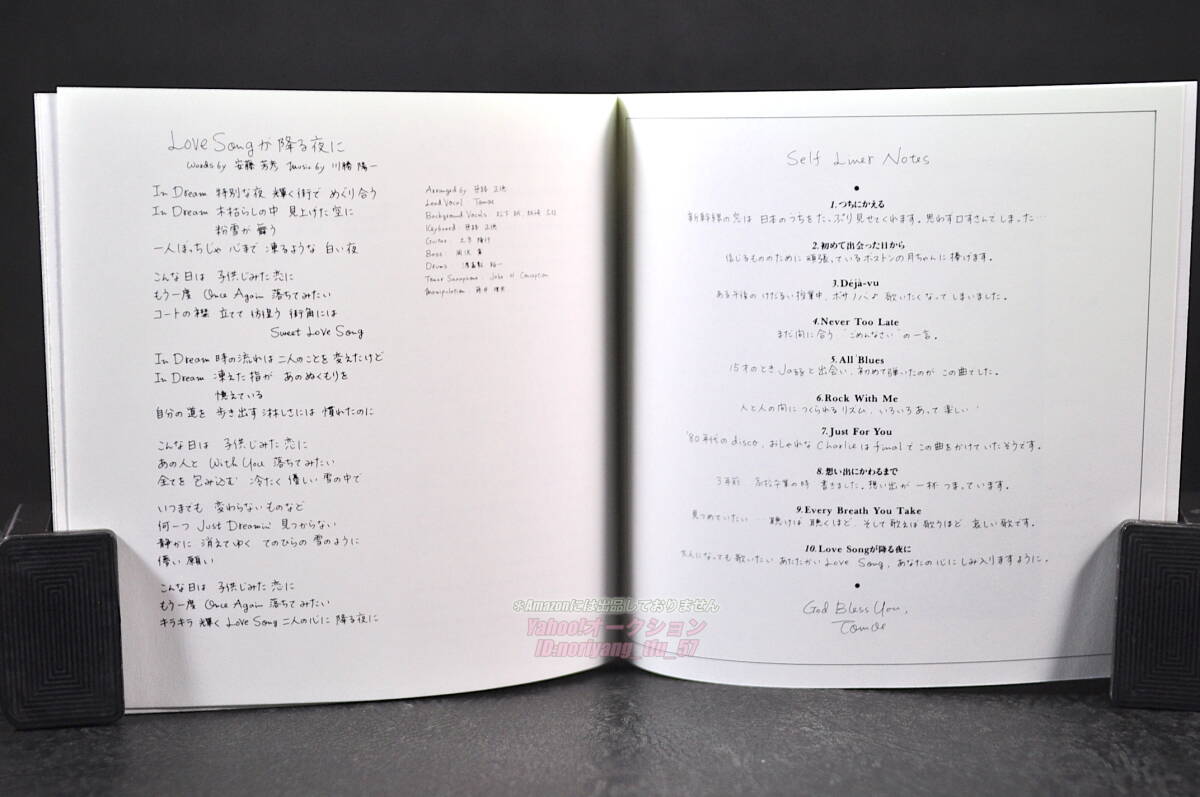 Love Songが降る夜に
Words by 安藤芳彦 Music by 川崎 陽一
In Dream 特別な夜 輝く街で めぐり合う
In Dream 木枯らしの中 見上げた空に
粉雪が 舞う
一人ぼっちじゃ 心まで 凍るような 白い夜
こんな日は 子供じみた 恋に
もう一度 Once Again 落ちてみたい
コートの襟 立てて 彷徨う 街角には
Sweet Love Song
In Dream 時の流れは 二人のことを 変えたけど
In Dream 凍えた指が あのぬくもりを
憶えている
自分の道を 歩き出す 淋しさには 慣れたのに
こんな日は 子供じみた 恋に
あの人と With You 落ちてみたい
全てを 包み込む 冷たく 優しい 雪の中で
いつまでも 変わらないものなど
何一つ Just Dreamin' 見つからない
静かに 消えてゆく てのひらの 雪のように
儚い 願い
こんな日は 子供じみた 恋に
もう一度 Once Again 落ちてみたい
キラキラ 輝く Love Song 二人の心に 降る夜に
Arranged by
Lead Vocal Tomoe
Background Vocals
Keyboard
Guitar
Bass
Drums
Tenor Saxophone : Jake H. Concepcion
Manipulation
Self Liner Notes
1.つちにかえる
新幹線の窓は 日本のつちをたっぷり見せてくれます。思わず口ずさんでしまった…
2.初めて出会った日から
信じるもののために 頑張っているボストンの月ちゃんに 捧げます。
3.Déjà-vu
ある午後の けだるい授業中、ボサノバよ 歌いたくなって しまいました。
4.Never Too Late
まだ間に合う "ごめんなさい" の一言。
5.All Blues
15才のとき Jazzと出会い、初めて弾いたのが この曲でした。
6.Rock With Me
人と人の間に つくられる リズム、いろいろあって 楽しい
7.Just For You
'80年代のdisco、おしゃれな Charlieは finalで この曲をかけていたそうです。
8.想い出にかわるまで
3年前 高校卒業の時 書きました。想い出が 一杯 つまっています。
9.Every Breath You Take
見つめていたい… 聴けば 聴くほど、そして歌えば 歌うほど 哀しい 歌です。
10.Love Songが降る夜に
大人になっても 歌いたい あたたかい Love Song、あなたの心に しみ入りますように。
God Bless You,
Tomoe
※Amazonには出品しておりません
Yahoo!オークション
ID:noriyang_tfu_57